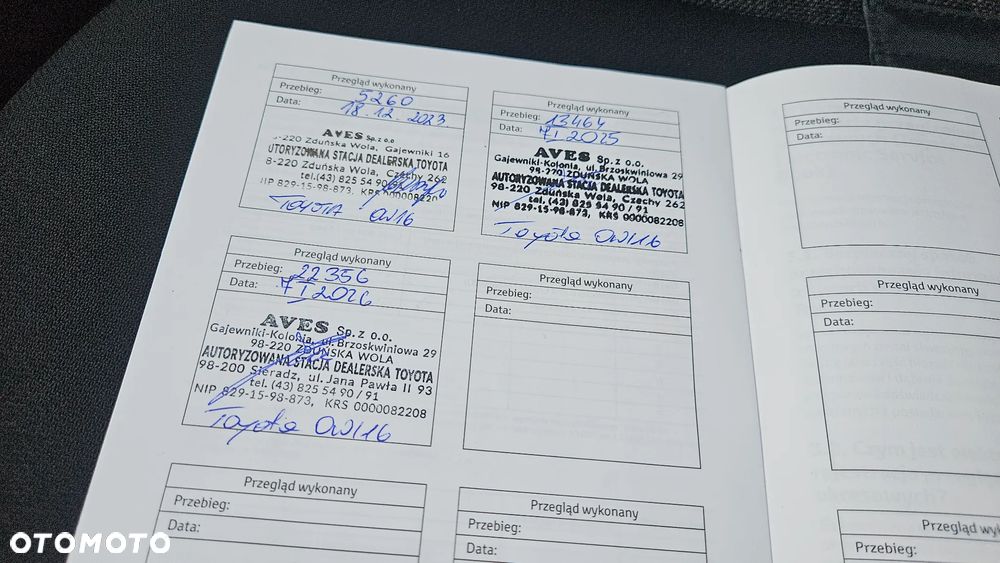 Przegląd wykonany
Przebieg: 5260
Data: 18.12.2023
AVES Sp. z o.o.
-220 Zduńska Wola, Gajewniki 16
UTORYZOWANA STACJA DEALERSKA TOYOTA
8-220 Zduńska Wola, Czechy 262
tel.(43) 825 54 90
NIP 829-15-98-873, KRS 0000082208
TOYOTA 0W16
Przegląd wykonany
Przebieg: 13464
Data: 7 I 2025
AVES Sp. z o.o.
Gajewniki-Kolonia, ul. Brzoskwiniowa 29
98-220 ZDUŃSKA WOLA
AUTORYZOWANA STACJA DEALERSKA TOYOTA
98-220 Zduńska Wola, Czechy 262
tel. (43) 825 54 90 / 91
NIP 829-15-98-873, KRS 0000082208
Toyota 0W16
Przegląd wykonany
Przebieg: 22356
Data: 7 I 2026
AVES Sp. z o.o.
Gajewniki-Kolonia, ul. Brzoskwiniowa 29
98-220 ZDUŃSKA WOLA
AUTORYZOWANA STACJA DEALERSKA TOYOTA
98-200 Sieradz, ul. Jana Pawła II 93
tel. (43) 825 54 90 / 91
NIP 829-15-98-873, KRS 0000082208
Toyota 0W16
Przegląd wykonany
Przebieg:
Data:
Przegląd wykonany
Przebieg:
Data:
Przegląd wykonany
Przebieg:
Data:
Przegląd wykonany
Przebieg:
Data:
Przegląd wykonany
Przebieg:
Data:
Przegląd wykon
Przebieg:
OTOMOTO